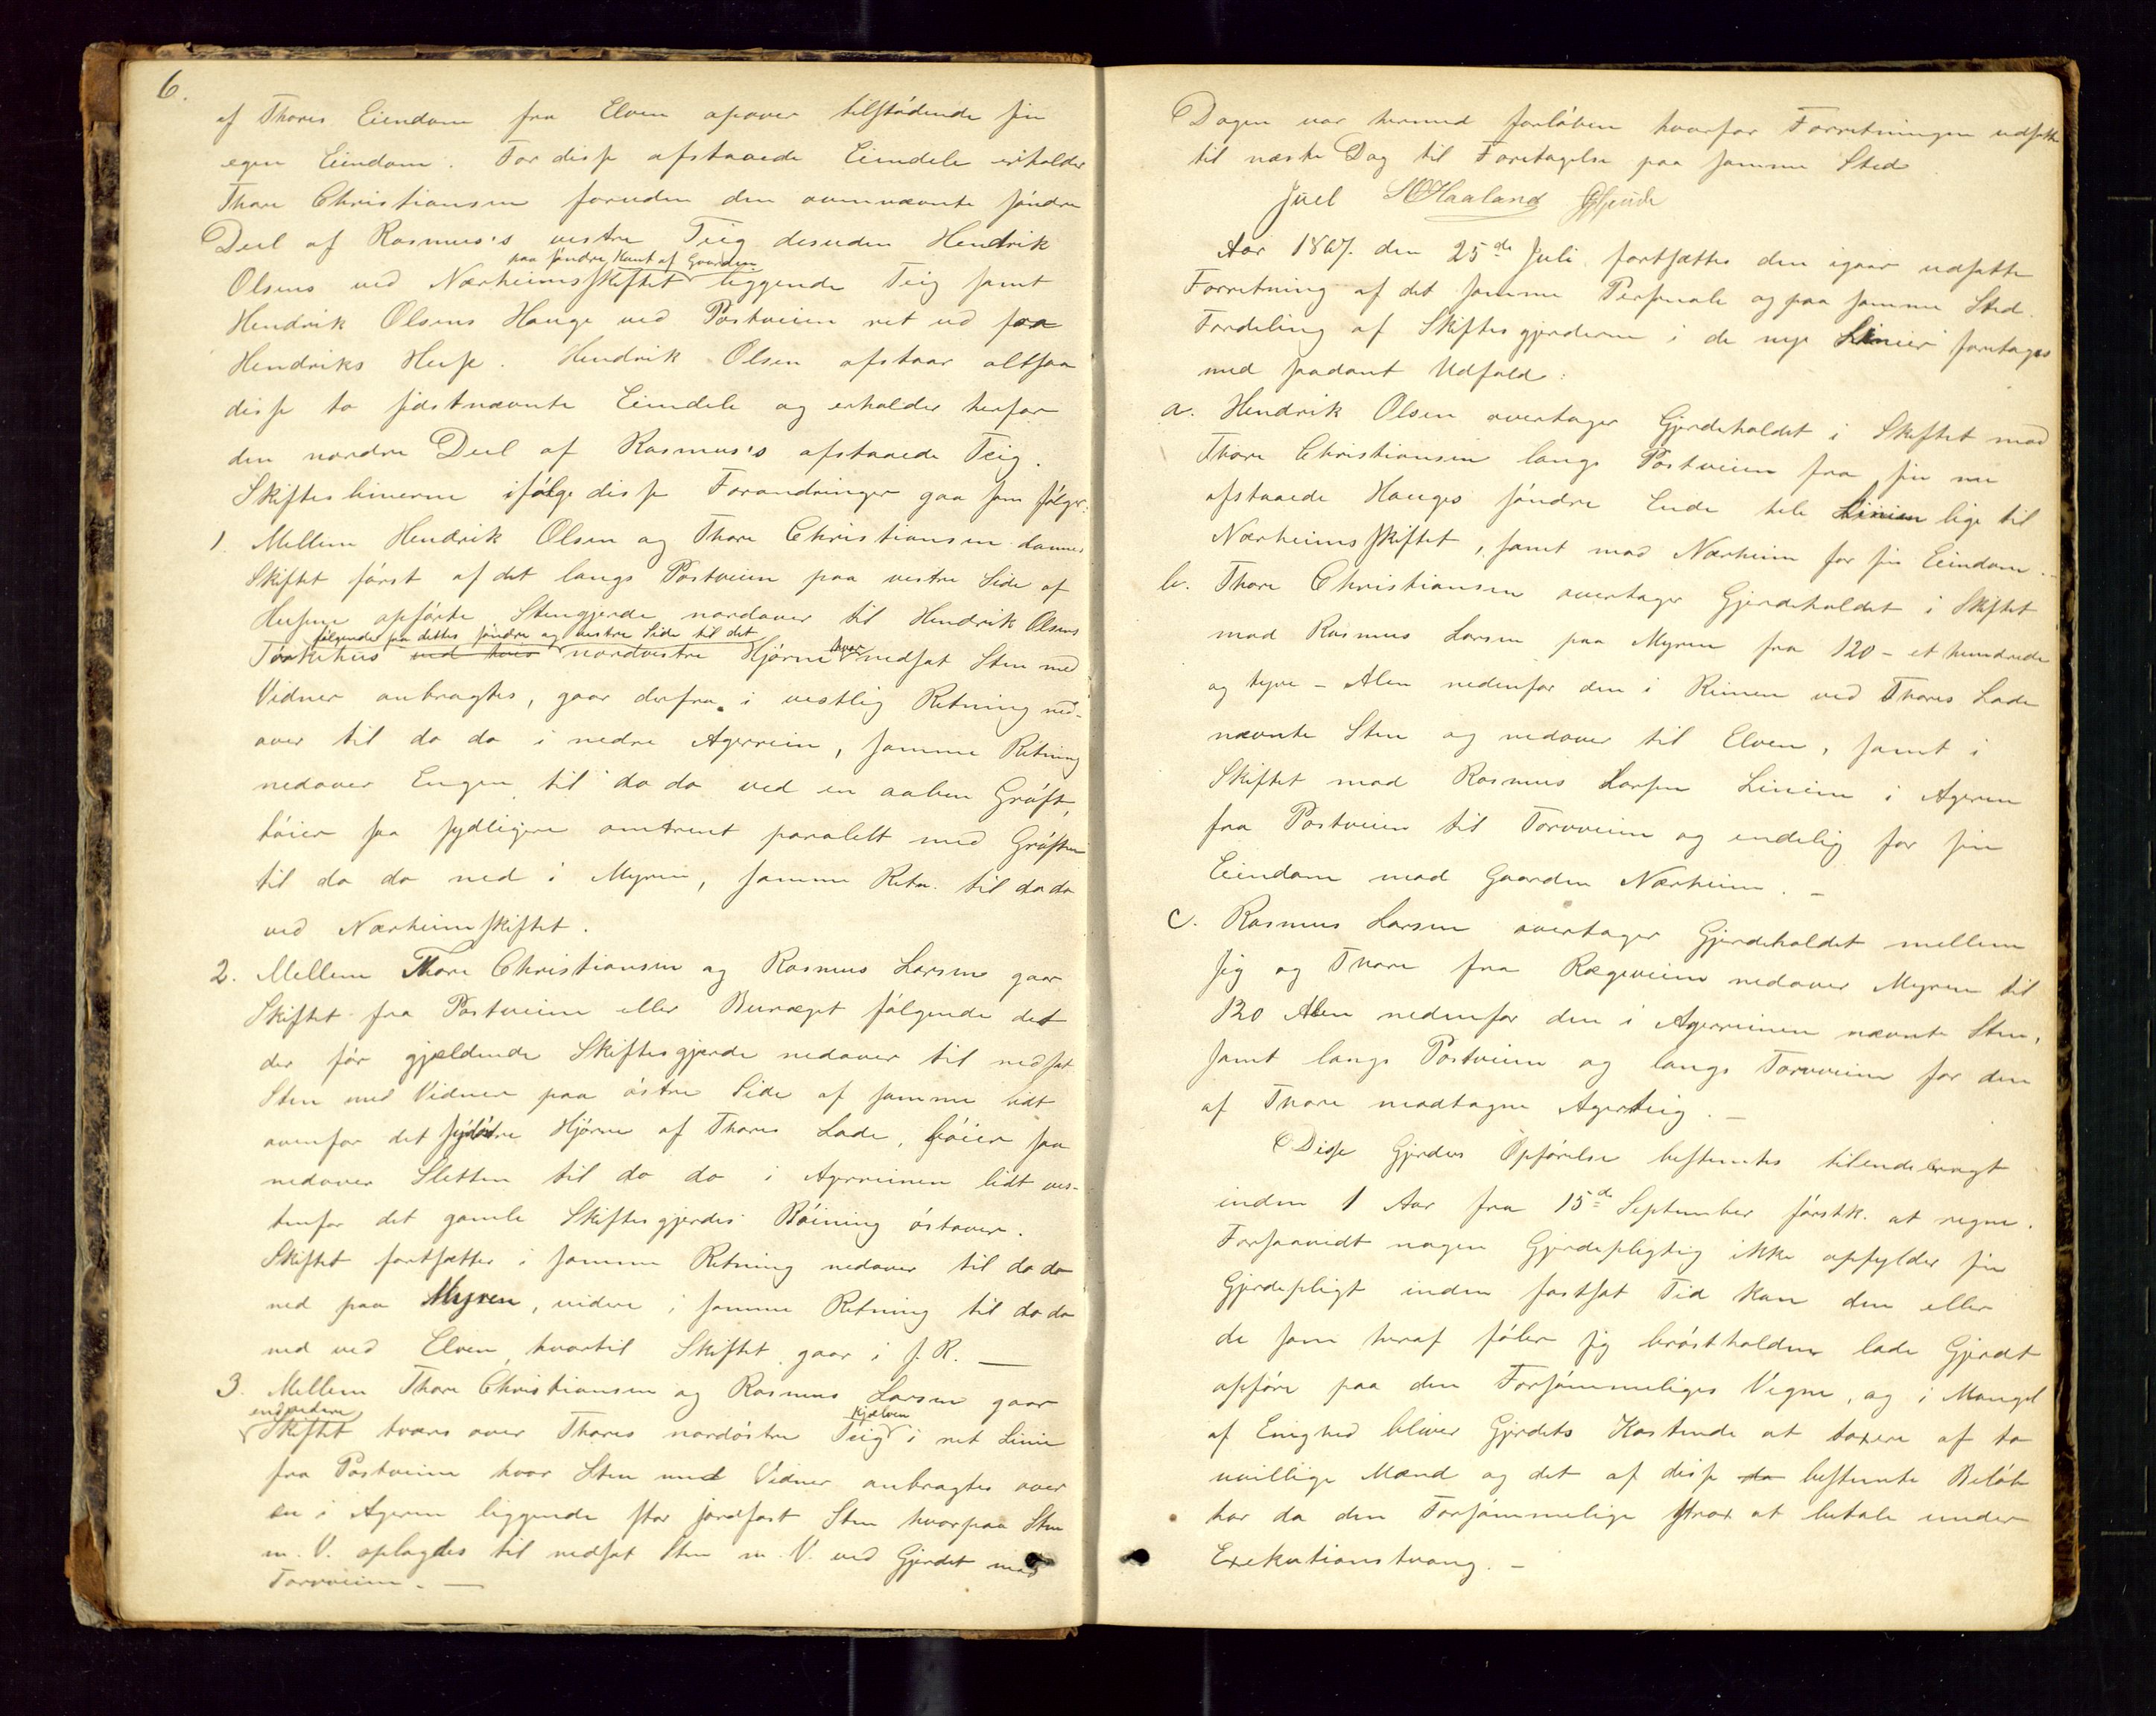 6.
af Thores Eiendom fra Elven opover tilstødende sin
egen Eiendom. For disse afstaaede Eiendele erholder
Thore Christiansen foruden den ovennævnte søndre
Deel af Rasmus's vestre Teig desuden Hendrik
paa søndre Kant af Gaarden
Olsens ved Nærheimsskiftet liggende Teig samt
Hendrik Olsens Hauge ved Postveien ret ud fra
Hendriks Huse. Hendrik Olsen afstaar altsaa
disse to sidstnævnte Eiendele og erholder herfor
den nordre Deel af Rasmus's afstaaede Teig.
Skifteslinierne ifølge disse Forandringer gaa som følger:
1. Mellem Hendrik Olsen og Thore Christiansen dannes
Skiftet først af det langs Postveien paa vestre Side af
Husene opførte Stengjerde nordover til Hendrik Olsens
følgende paa dettes søndre og vestre Side til det
Tørkehus ved hvis nordvestre Hjørne hvor nedsat Sten med
Vidner anbragtes, gaar derfra i vestlig Retning ned-
over til do do i nedre Agerrein, samme Retning
nedover Engen til do do ved en aaben Grøft,
bøier saa sydligere omtrent paralelt med Grøften
til do do ned i Myren, samme Retn. til do do
ved Nærheimsskiftet.
2. Mellem Thore Christiansen og Rasmus Larsen gaar
Skiftet fra Postveien eller Buræget følgende det
der før gjældende Skiftesgjerde nedover til nedsat
Sten med Vidner paa østre Side af samme lidt
ovenfor det sydøstre Hjørne af Thores Lade, bøier saa
nedover Sletten til do do i Agerreinen lidt ves-
tenfor det gamle Skiftesgjerdes Bøining østover.
Skiftet fortsætter i samme Retning nedover til do do
ned paa Myren, videre i samme Retning til do do
ned ved Elven, hvortil Skiftet gaar i s. R. —
3. Mellem Thore Christiansen og Rasmus Larsen gaar
endvidere kjælven
Skiftet tværs over Thores nordøstre Teig i ret Linie
fra Postveien hvor Sten med Vidner anbragtes over
en i Ageren liggende stor jordfast Sten hvorpaa Sten
m. V. oplagdes til nedsat Sten m. V. ved Gjerdet mod
Torvveien. —
Dagen var hermed forløben hvorfor Forretningen udsatte
til næste Dag til Foretagelse paa samme Sted
Juel Haaland
Aar 1867. den 25de Juli fortsattes den igaar udsatte
Forretning af det samme Personale og paa samme Sted.
Fordeling af Skiftesgjerderne i de nye Linier foretages
med saadant Udfald:
a. Hendrik Olsen overtager Gjerdeholdet i Skiftet mod
Thore Christiansen langs Postveien fra sin nu
afstaaede Hauges søndre Ende hele Linien lige til
Nærheimsskiftet, samt mod Nærheim for sin Eiendom. –
b. Thore Christiansen overtager Gjerdeholdet i Skiftet
mod Rasmus Larsen paa Myren fra 120 – et hundrede
og tyve – Alen nedenfor den i Reinen ved Thores Lade
nævnte Sten og nedover til Elven, samt i
Skiftet mod Rasmus Larsen Linien i Ageren
fra Postveien til Torvveien og endelig for sin
Eiendom mod Gaarden Nærheim. –
c. Rasmus Larsen overtager Gjerdeholdet mellem
sig og Thore fra Rægeveien nedover Myren til
120 Alen nedenfor den i Agerreinen nævnte Sten,
samt langs Postveien og langs Torvveien for den
af Thore modtagne Agerteig. –
Disse Gjerders Opførelse bestemtes tilendebragt
inden 1 Aar fra 15de September førstk. at regne.
Forsaavidt nogen Gjerdepligtig ikke opfylder sin
Gjerdepligt inden fastsat Tid kan den eller
de som heraf føler sig brøstholden lade Gjerdet
opføre paa den Forsømmeliges Vegne, og i Mangel
af Enighed bliver Gjerdets Kostende at taxere af to
uvillige Mænd og det af disse da bestemte Beløb
har da den Forsømmelige strax at betale under
Exekutionstvang. –